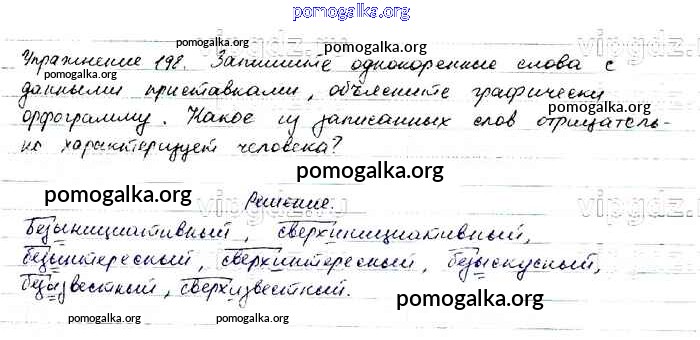 pomogalka.org
pomogalka.org
pomogalka.org
vipgdz.ru
Упражнение 198. Запишите однокоренные слова с
данными приставками, объясните графически
pomogalka.org
орфограмму. Какое из записанных слов отрицатель-
но характеризует человека?
pomogalka.org
pomogalka.org
vipgdz.ru
Решение.
Безынициативный, сверхинициативный,
безынтересный, сверхинтересный, безыскусный,
безызвестный, сверхизвестный.
pomogalka.org
pomogalka.org
pomogalka.org